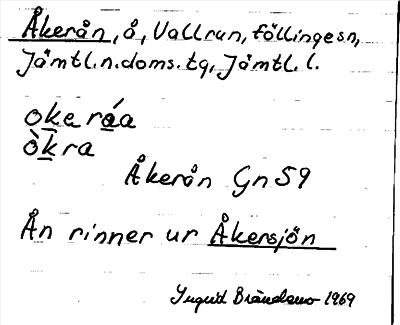 Åkerån, å, Vallrun, föllingesn,
Jämtl.n.doms.tg, Jämtl.l.
okeráa
òkra
Åkerån Gn 59
Ån rinner ur Åkersjön
Ingrid 1969